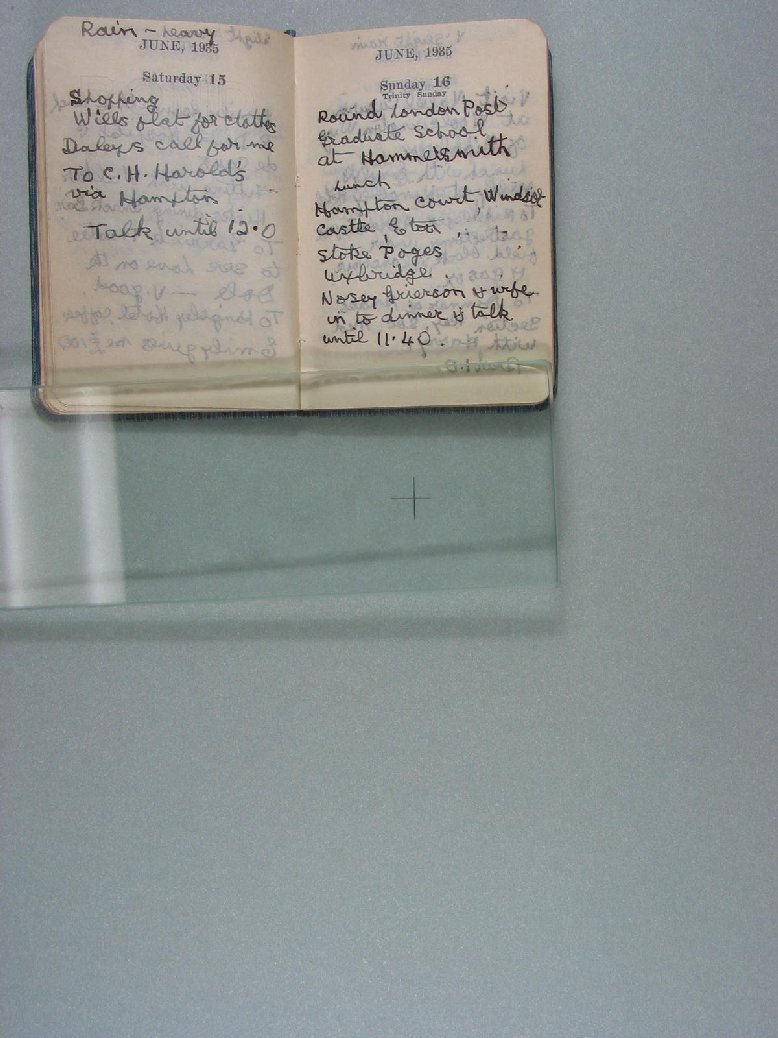 Rain - heavy
JUNE, 1935
Saturday 15
Shopping
Wills flat for clothes
Daleys call for me
To C. H. Harold's
via Hampton
Talk until 12.0
JUNE, 1935
Sunday 16
Trinity Sunday
Round London Post
Graduate School
at Hammersmith
Lunch
Hampton Court, Windsor
Castle, Eton,
Stoke Poges
Uxbridge.
Nosey Grierson & wife
in to dinner & talk
until 11.40.